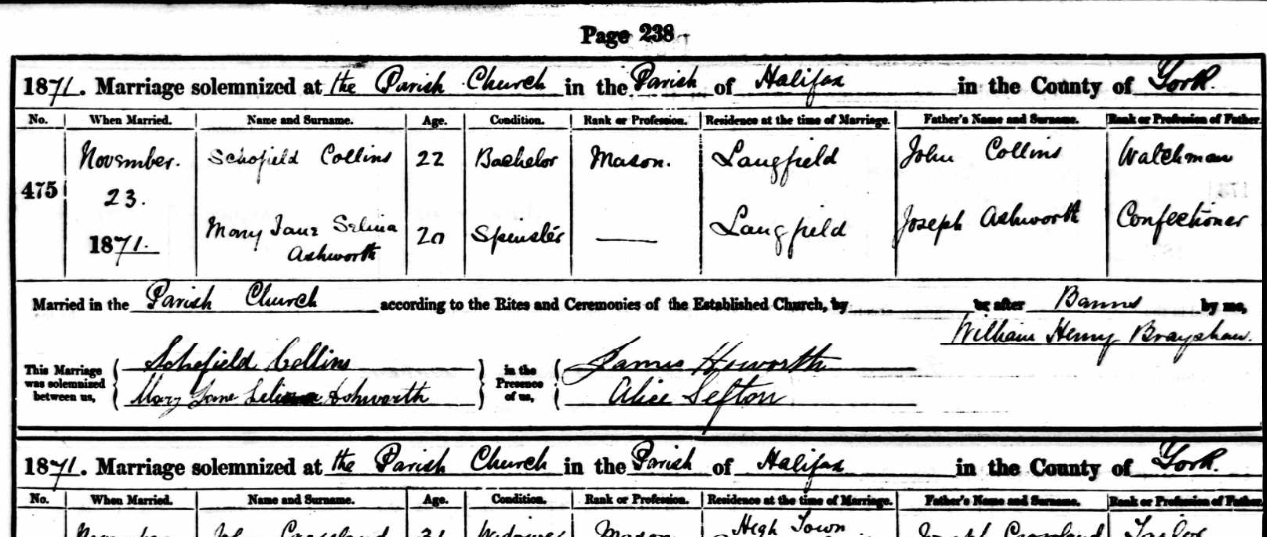 Page 238
1871. Marriage solemnized at the Parish Church in the Parish of Halifax in the County of York.
No. When Married. Name and Surname. Age. Condition. Rank or Profession. Residence at the time of Marriage. Father's Name and Surname. Rank or Profession of Father.
November. Schofield Collins 22 Bachelor Mason. Langfield John Collins Watchman
475 23.
1871. Mary Jane Selina Ashworth 20 Spinster — Langfield Joseph Ashworth Confectioner
Married in the Parish Church according to the Rites and Ceremonies of the Established Church, by or after Banns by me,
William Henry Brayshaw.
This Marriage was solemnized between us, Schofield Collins in the Presence of us, James Howorth
Mary Jane Selina Ashworth Alice Sefton
1871. Marriage solemnized at the Parish Church in the Parish of Halifax in the County of York.
No. When Married. Name and Surname. Age. Condition. Rank or Profession. Residence at the time of Marriage. Father's Name and Surname. Rank or Profession of Father.
High Town
November John Crossland 31 Widower Mason Joseph Crossland Tailor